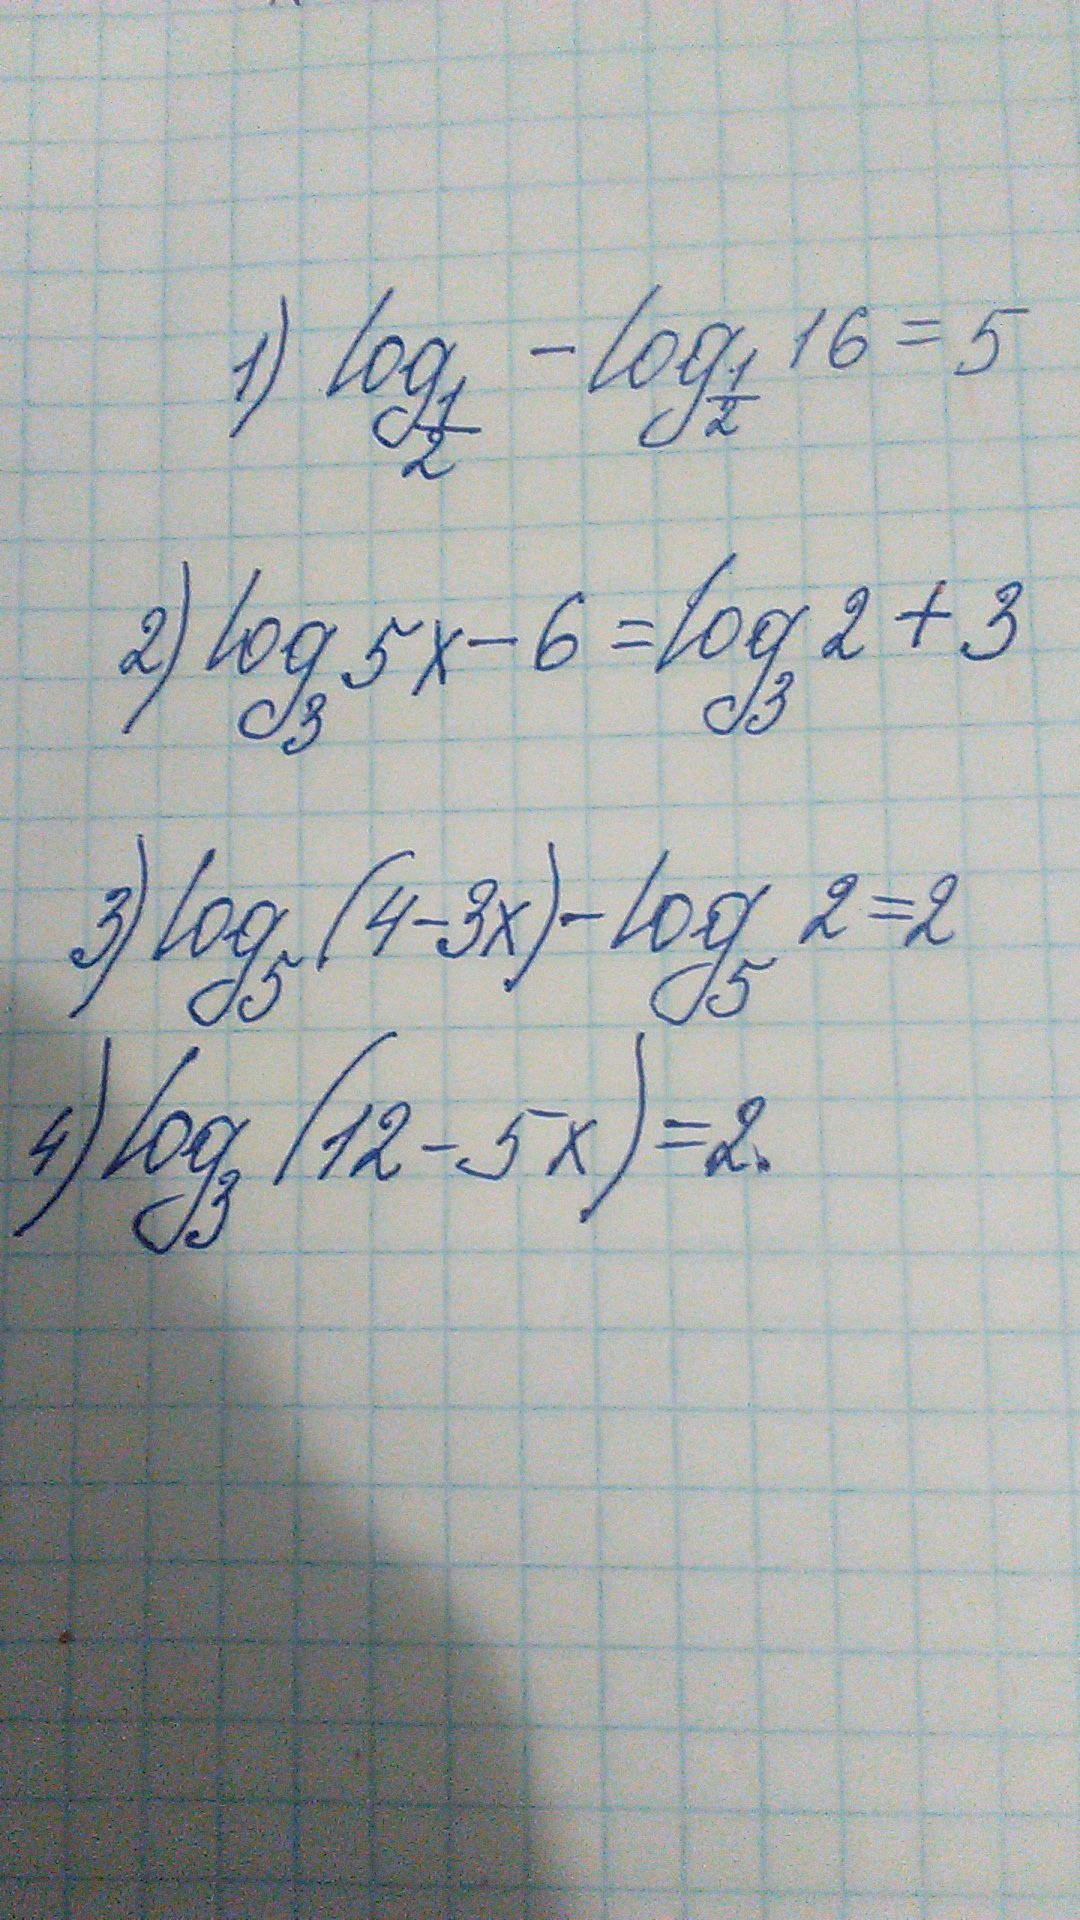 1) log 1/2 - log 1/2 16 = 5
2) log₃ 5x - 6 = log₃ 2 + 3
3) log₅ (4 - 3x) - log₅ 2 = 2
4) log₃ (12 - 5x) = 2.